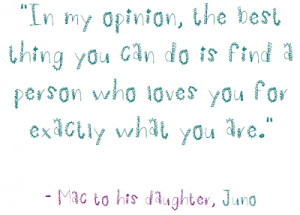 "In my opinion, the best
thing you can do is find a
person who loves you for
exactly what you are."
- Mac to his daughter, Juno